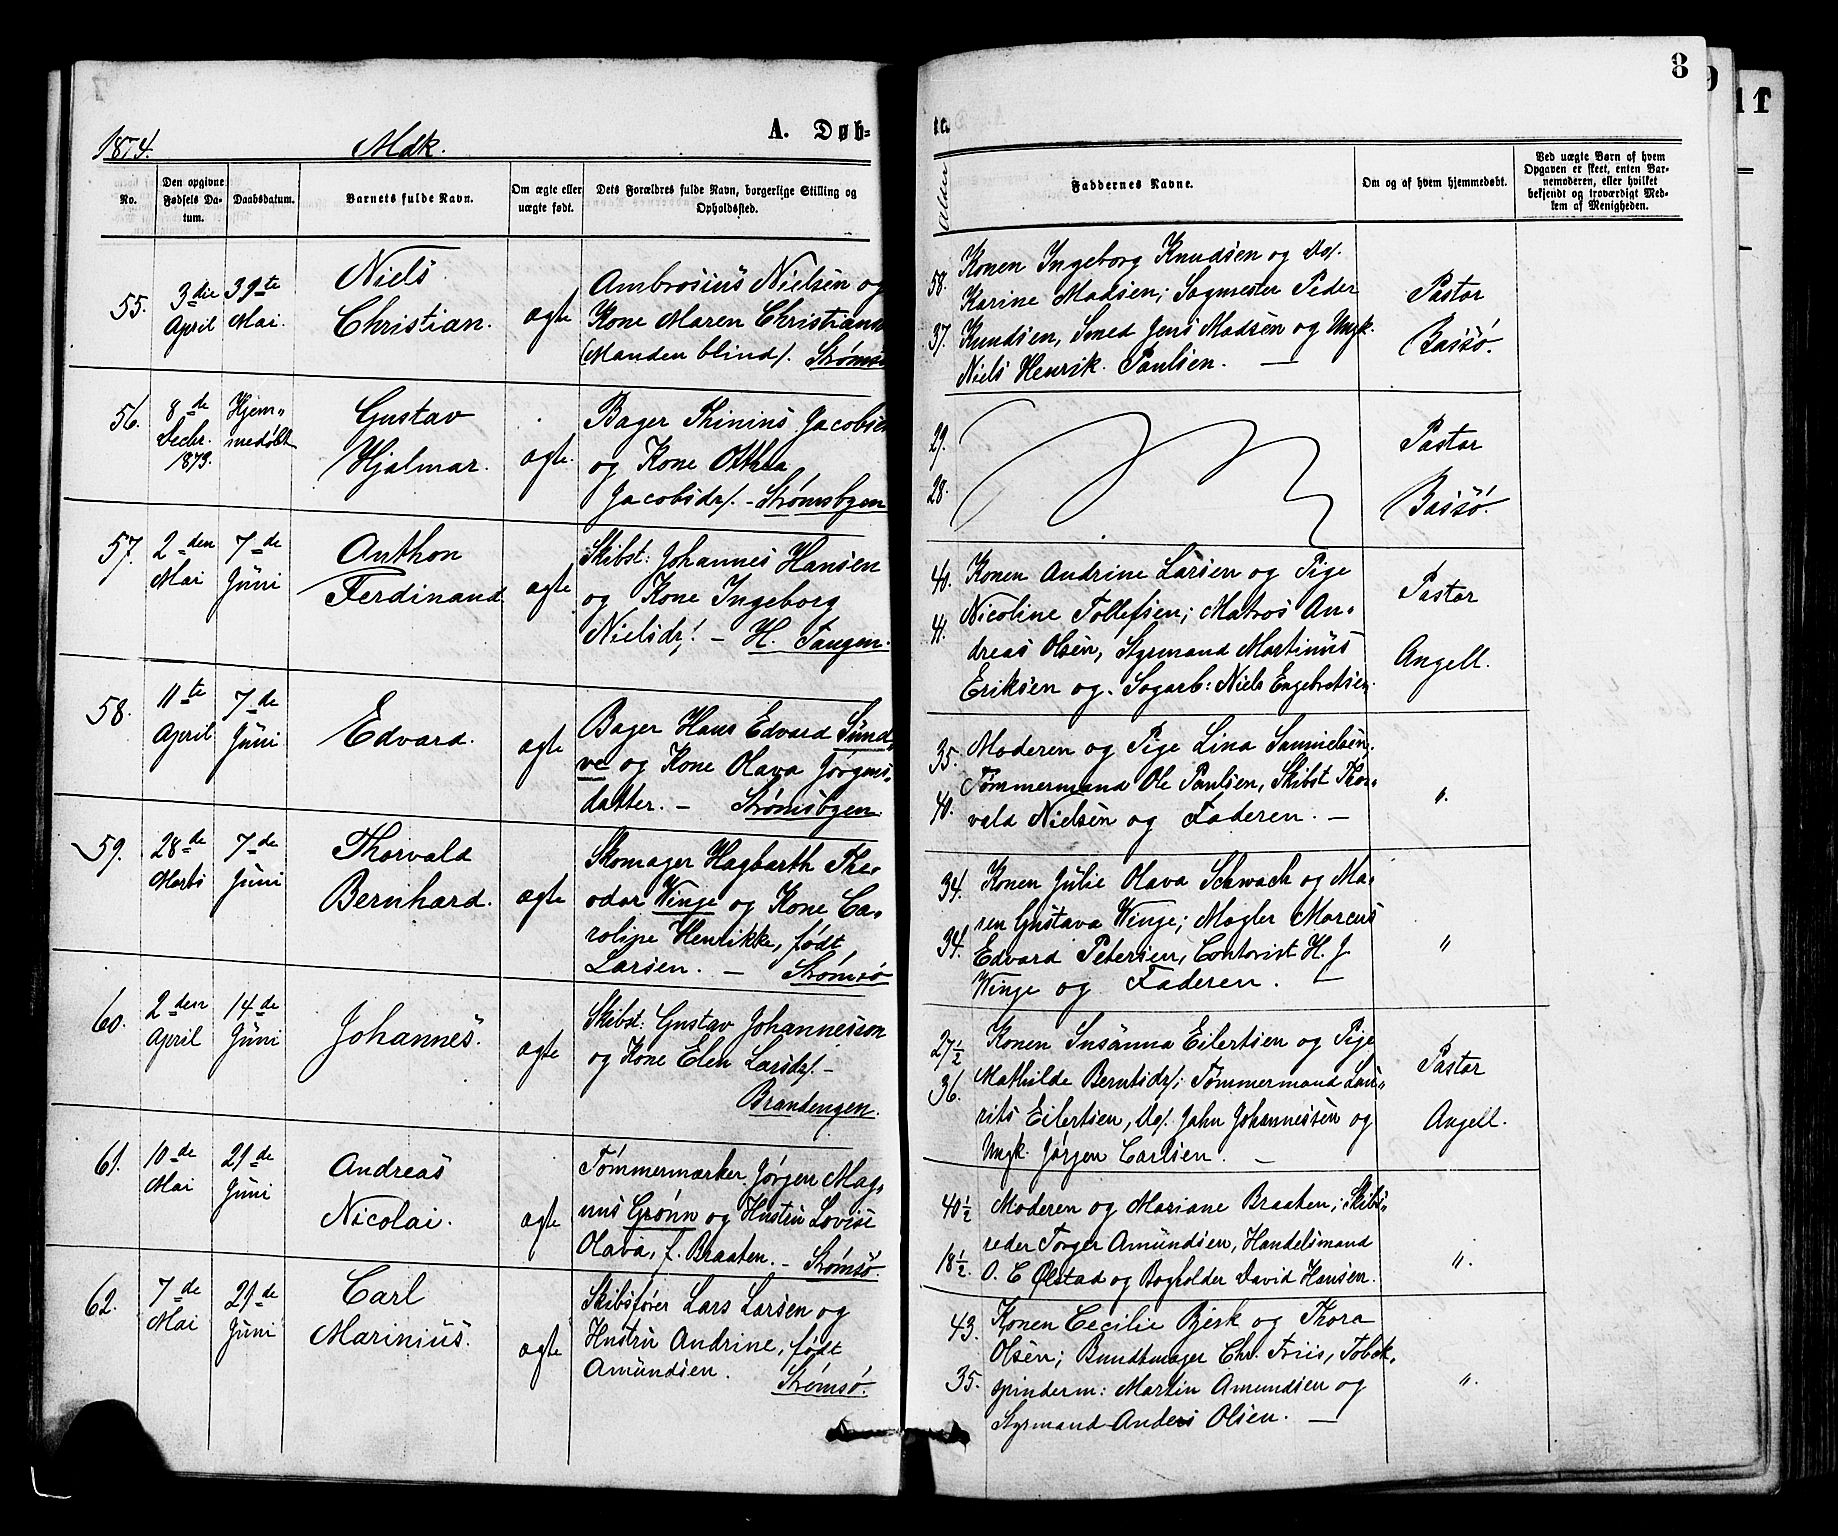 8
9
11
1874.
Mdk.
A. Døb-
te
No.
Den opgivne Fødsels Datum.
Daabsdatum.
Barnets fulde Navn.
Om ægte eller uægte født.
Dets Forældres fulde Navn, borgerlige Stilling og Opholdssted.
Alder
Faddernes Navne.
Om og af hvem hjemmedøbt.
Ved uægte Børn af hvem
Opgaven er skeet, enten Bar-
nemoderen, eller hvilket
bekjendt og troværdigt Med-
lem af Menigheden.
55.
3die April
31te Mai.
Niels
Christian.
ægte
Ambrosius Nielsen og
Kone Maren Christians
(Manden blind). Strømsø
58.
37.
Konen Ingeborg Knudsen og Do.
Karine Madsen; Sagmester Peder
Knudsen, Smed Jens Madsen og Ungk.
Niels Henrik Paulsen. —
Pastor
Bassö.
56.
8de Decbr. 1873.
Hjem-
medøbt
Gustav
Hjalmar.
ægte.
Bager Thinius Jacobsen
og Kone Otthea
Jacobsdr. - Strømsbyen
29.
28.
Pastor
Bassö.
57.
2den Mai
7de Juni
Anthon
Ferdinand
ægte
Skibst: Johannes Hansen
og Kone Ingeborg
Nielsdr. - H. Tangen.
41.
41.
Konen Andrine Larsen og Pige
Nicoline Tollefsen; Matros An-
dreas Olsen, Styrmand Martinius
Eriksen og Sagarb: Niels Engebretsen.
Pastor
Angell.
58.
11te April
7de Juni
Edvard.
ægte
Bager Hans Edvard Sund-
ve og Kone Olava Jørgens-
datter. - Strømsbyen
35.
40.
Moderen og Pige Lina Samuelsen.
Tømmermand Ole Paulsen, Skibst Thor-
vald Nielsen og Faderen. —
"
59.
28de Marts
7de Juni
Thorvald
Bernhard.
ægte
Skomager Hagbarth The-
odor Winge og Kone Ca-
roline Henrikke, født
Larsen. - Strømsø
34.
34.
Konen Julie Olava Schwach og Ma-
ren Gustava Winge; Mægler Marcus
Edvard Petersen, Contorist H. J.
Winge og Faderen. —
"
60.
2den April
14de Juni
Johannes.
ægte
Skibst: Gustav Johannesson
og Kone Elen Larsdr. -
Brandengen.
27½
36.
Konen Susanna Eilertsen og Pige
Mathilde Berntsdr.; Tømmermand Lau-
rits Eilertsen, Do. John Johannessen og
Ungk. Jørgen Carlsen. —
Pastor
Angell.
61.
10de Mai
21de Juni
Andreas
Nicolai.
ægte
Tømmermærker Jørgen Mag-
nus Grønn og Hustru Lovise
Olava, f. Braaten. - Strømsø.
40½
18½
Moderen og Mariane Braaten; Skibs-
reder Torger Amundsen, Handelsmand
O. C Ølstad og Bogholder David Hansen.
"
62.
7de Mai
21de Juni
Carl
Marinius.
ægte
Skibsfører Lars Larsen og
Hustru Andrine, født
Amundsen.
Strømsø.
43.
35.
Konen Cecilie Bjerk og Thora
Olsen; Bundtmager Chr. Friis, Tobak-
spinderm: Martin Amundsen og
Styrmand Anders Olsen. —
"